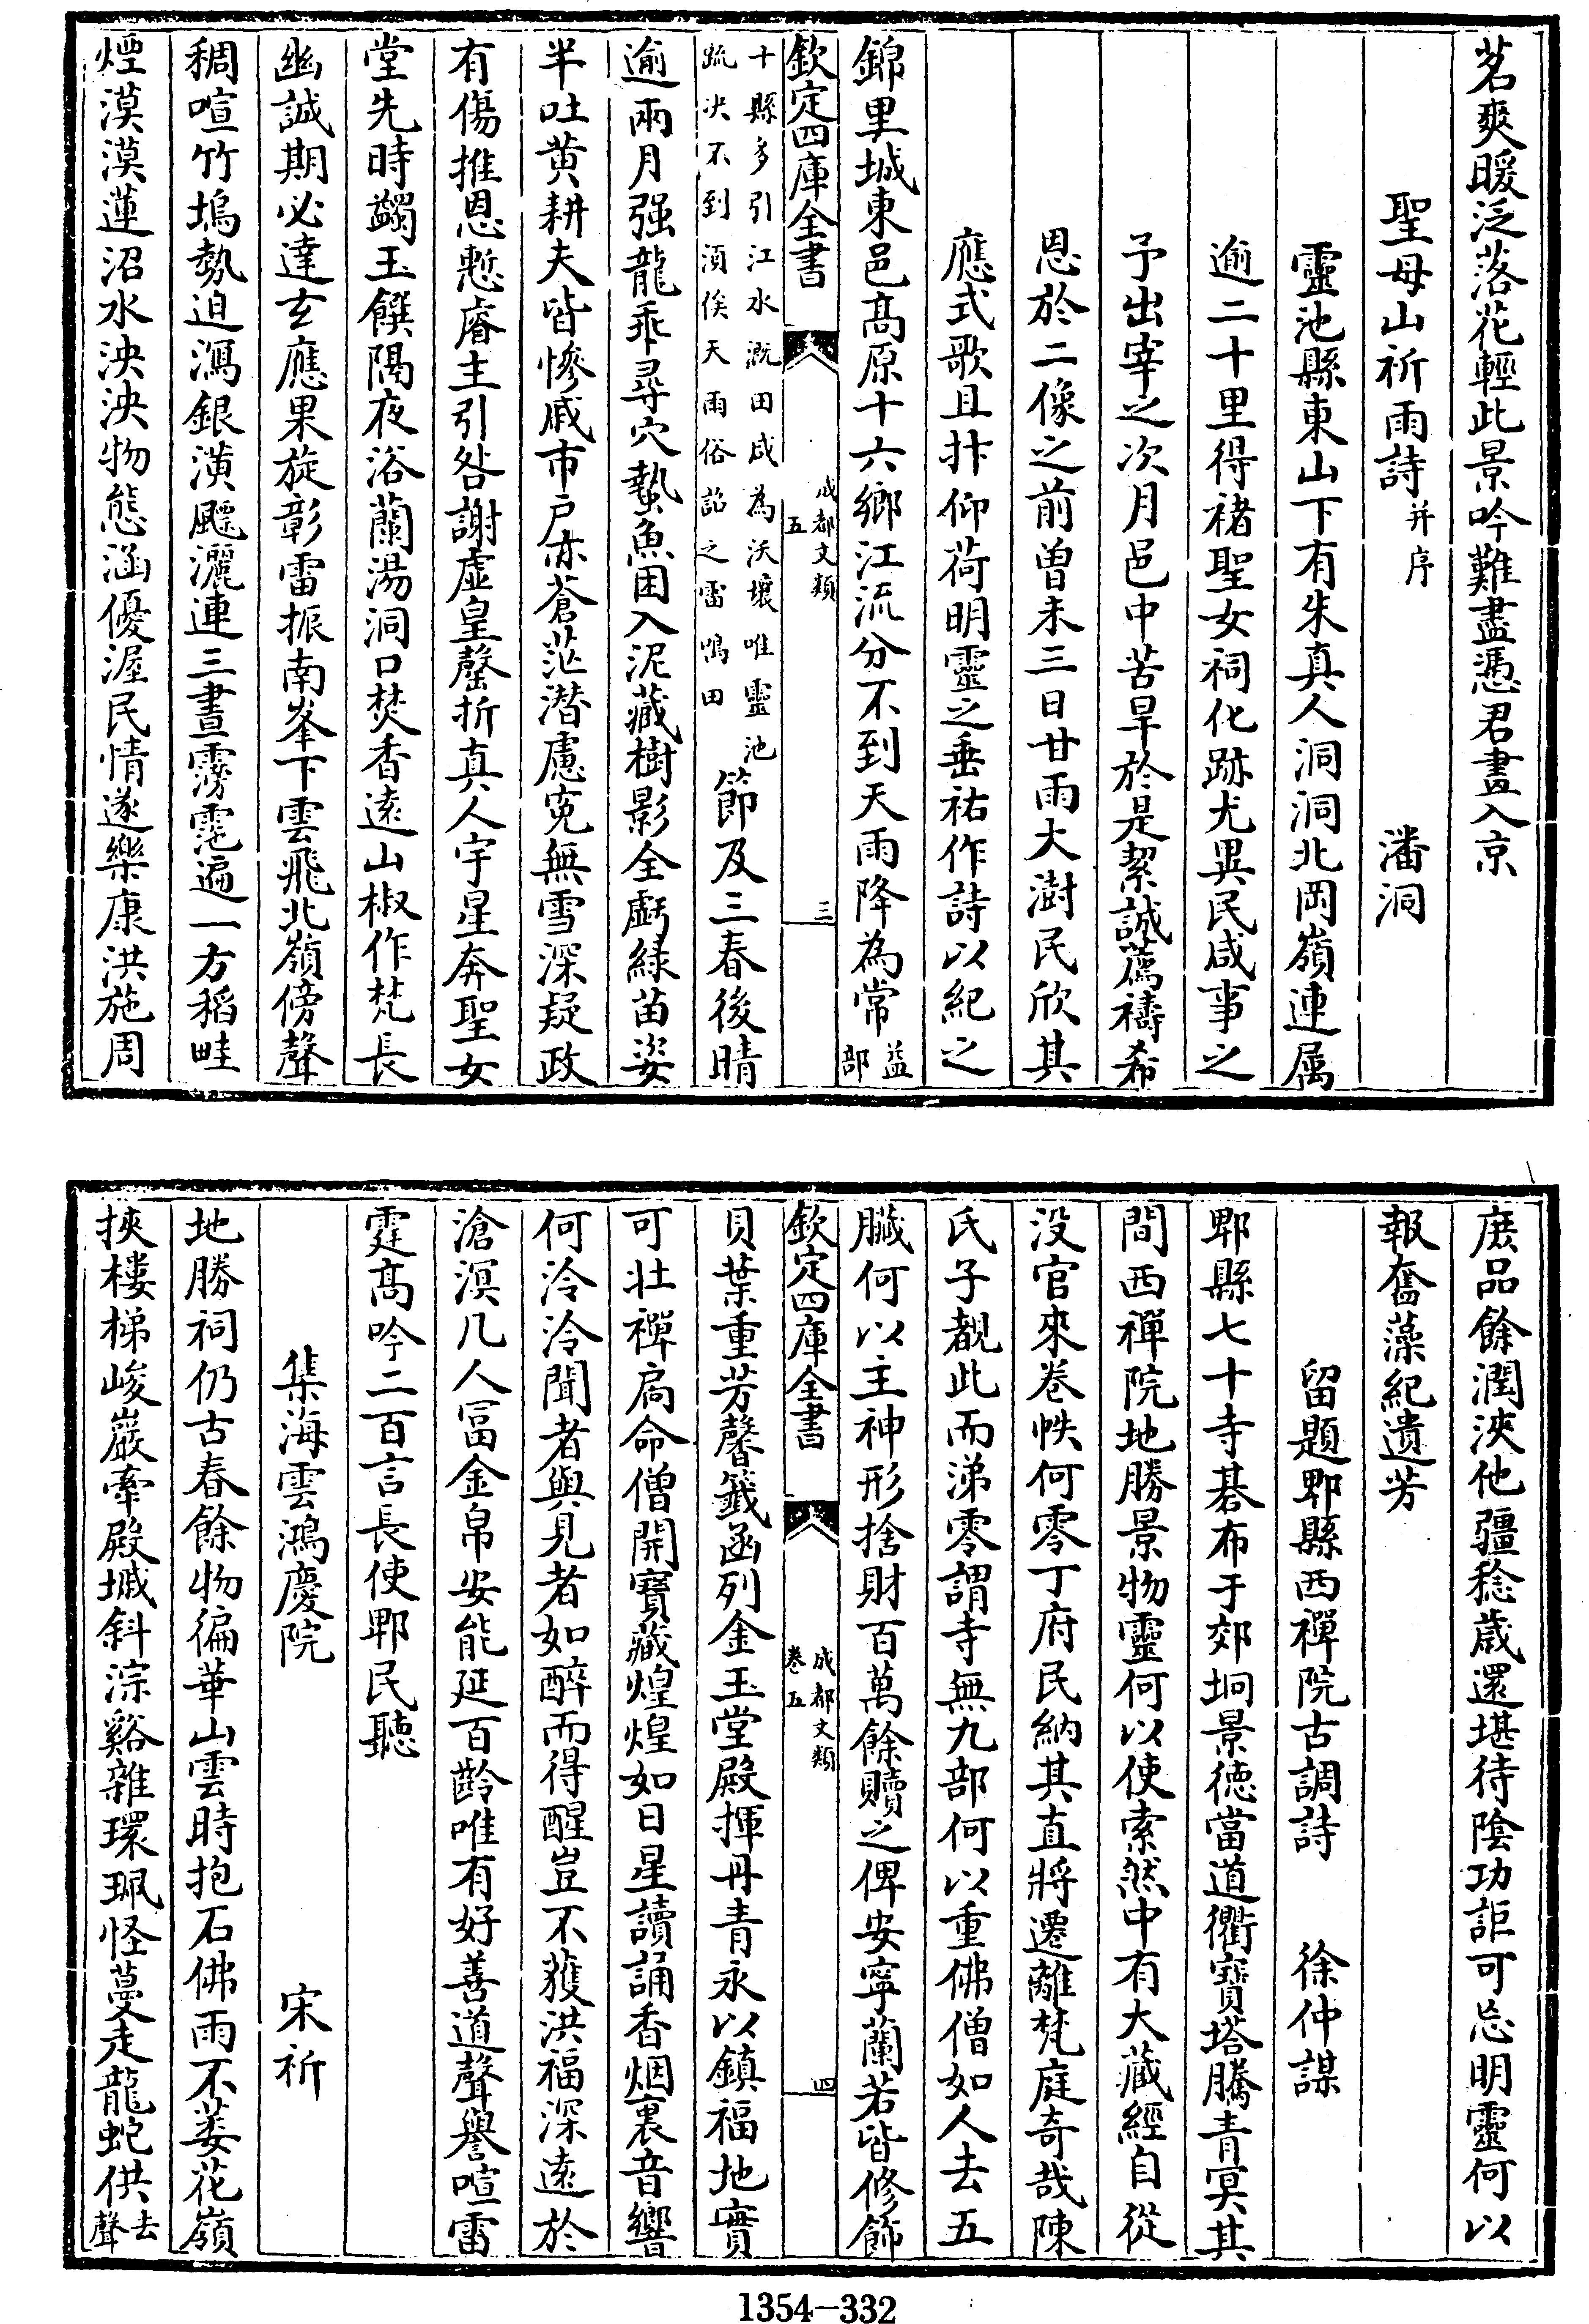 茗爽暖泛落花輕此景吟難盡憑君畫入京
聖母山祈雨詩并序 潘洞
靈池縣東山下有朱真人洞洞北岡嶺連属
逾二十里得褚聖女祠化跡尤異民咸事之
予出宰之次月邑中苦旱於是絜誠薦禱希
恩於二像之前曽未三日甘雨大澍民欣其
應式歌且抃仰荷明靈之垂祐作詩以紀之
錦里城東邑高原十六鄉江流分不到天雨降為常益
部
欽定四庫全書 成都文類
五 三
十縣多引江水溉田咸為沃壤唯靈池
疏决不到湏俟天雨俗詔之雷鳴田
節及三春後晴
逾兩月强龍乖尋穴蟄魚困入泥藏樹影全虧緑苗姿
半吐黄耕夫皆慘戚市戶亦蒼茫潜慮寃無雪深疑政
有傷推恩慙睿主引咎謝虚皇罄折真人宇星奔聖女
堂先時蠲玉饌隔夜浴蘭湯洞口焚香逺山椒作梵長
幽誠期必達玄應果旋彰雷振南峯下雲飛北嶺傍聲
稠喧竹塢勢迫瀉銀潢飋灑連三晝霶霑遍一方稻畦
煙漠漠蓮沼水泱泱物態涵優渥民情遂樂康洪施周
庶品餘潤浹他疆稔歳還堪待隂功詎可忘明靈何以
報奮藻紀遺芳
留題郫縣西禪院古調詩 徐仲謀
郫縣七十寺碁布于郊坰景徳當道衢寶塔騰青冥其
間西禪院地勝景物靈何以使索然中有大藏經自從
没官來卷帙何零丁府民納其直將遷離梵庭奇哉陳
氏子覩此而涕零謂寺無九部何以重佛僧如人去五
臟何以主神形捨財百萬餘贖之俾安寧蘭若皆修飾
欽定四庫全書 成都文類
卷五 四
貝葉重芳馨籖函列金玉堂殿揮丹青永以鎮福地實
可壯禪扃命僧開寶藏煌煌如日星讀誦香烟裏音響
何泠泠聞者與見者如醉而得醒豈不獲洪福深逺於
滄溟凡人冨金帛安能延百齡唯有好善道聲譽喧雷
霆高吟二百言長使郫民聽
集海雲鴻慶院 宋祈
地勝祠仍古春餘物徧華山雲時抱石佛雨不萎花嶺
挾樓梯峻巖牽殿墄斜淙谿雜環珮怪蔓走龍蛇供去
聲
1354-332